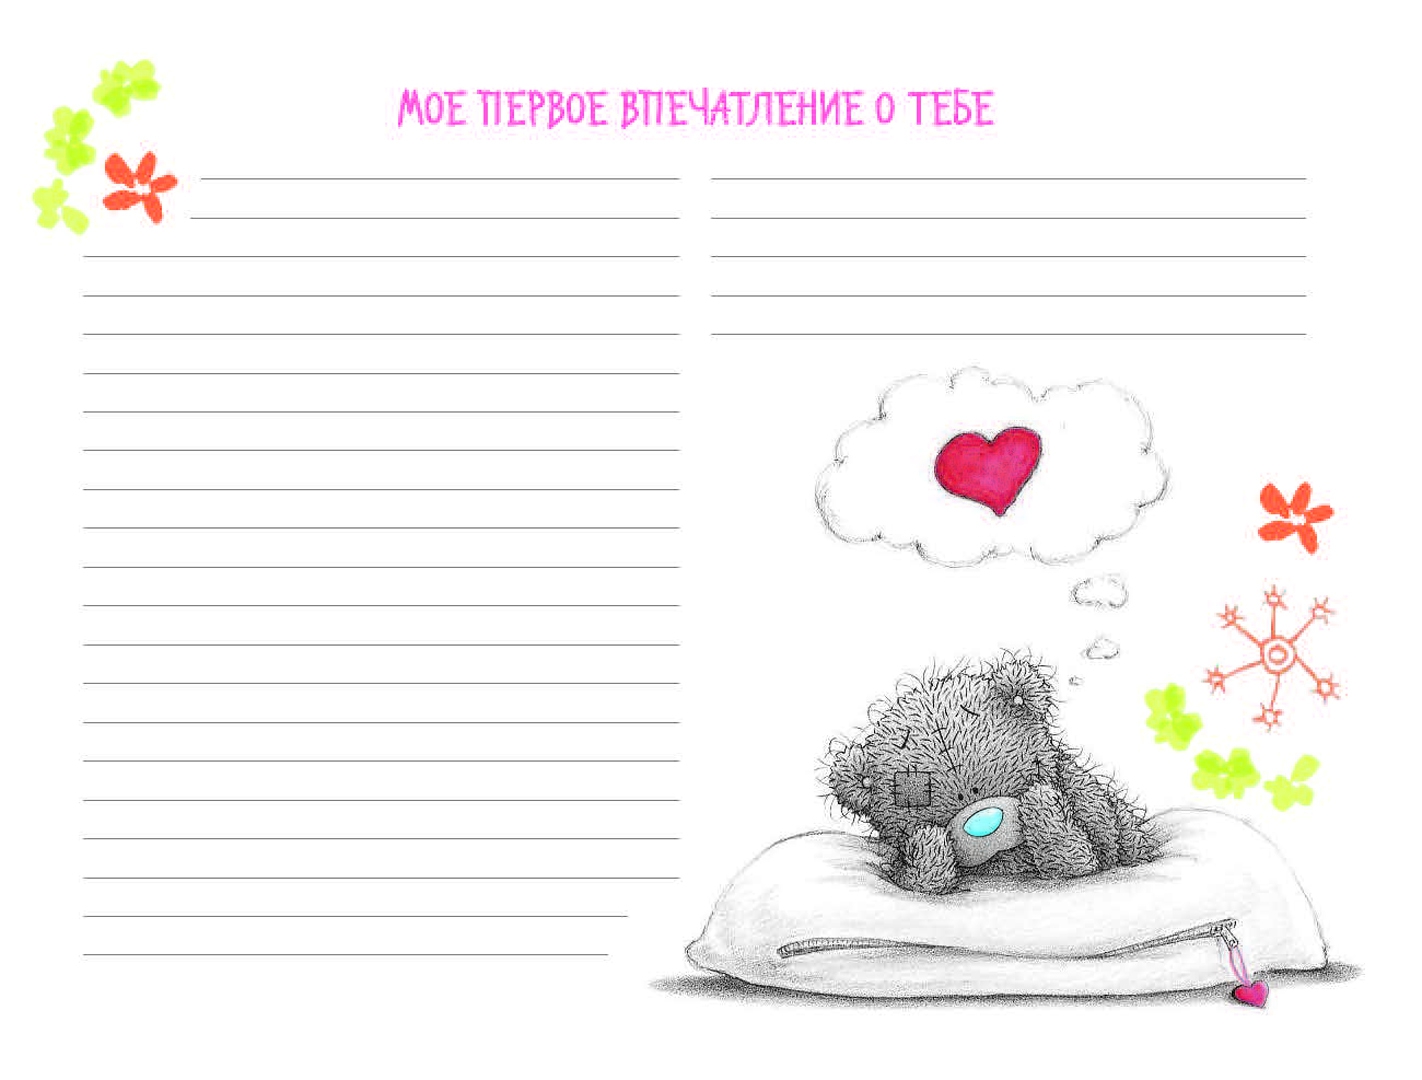 МОЕ ПЕРВОЕ ВПЕЧАТЛЕНИЕ О ТЕБЕ